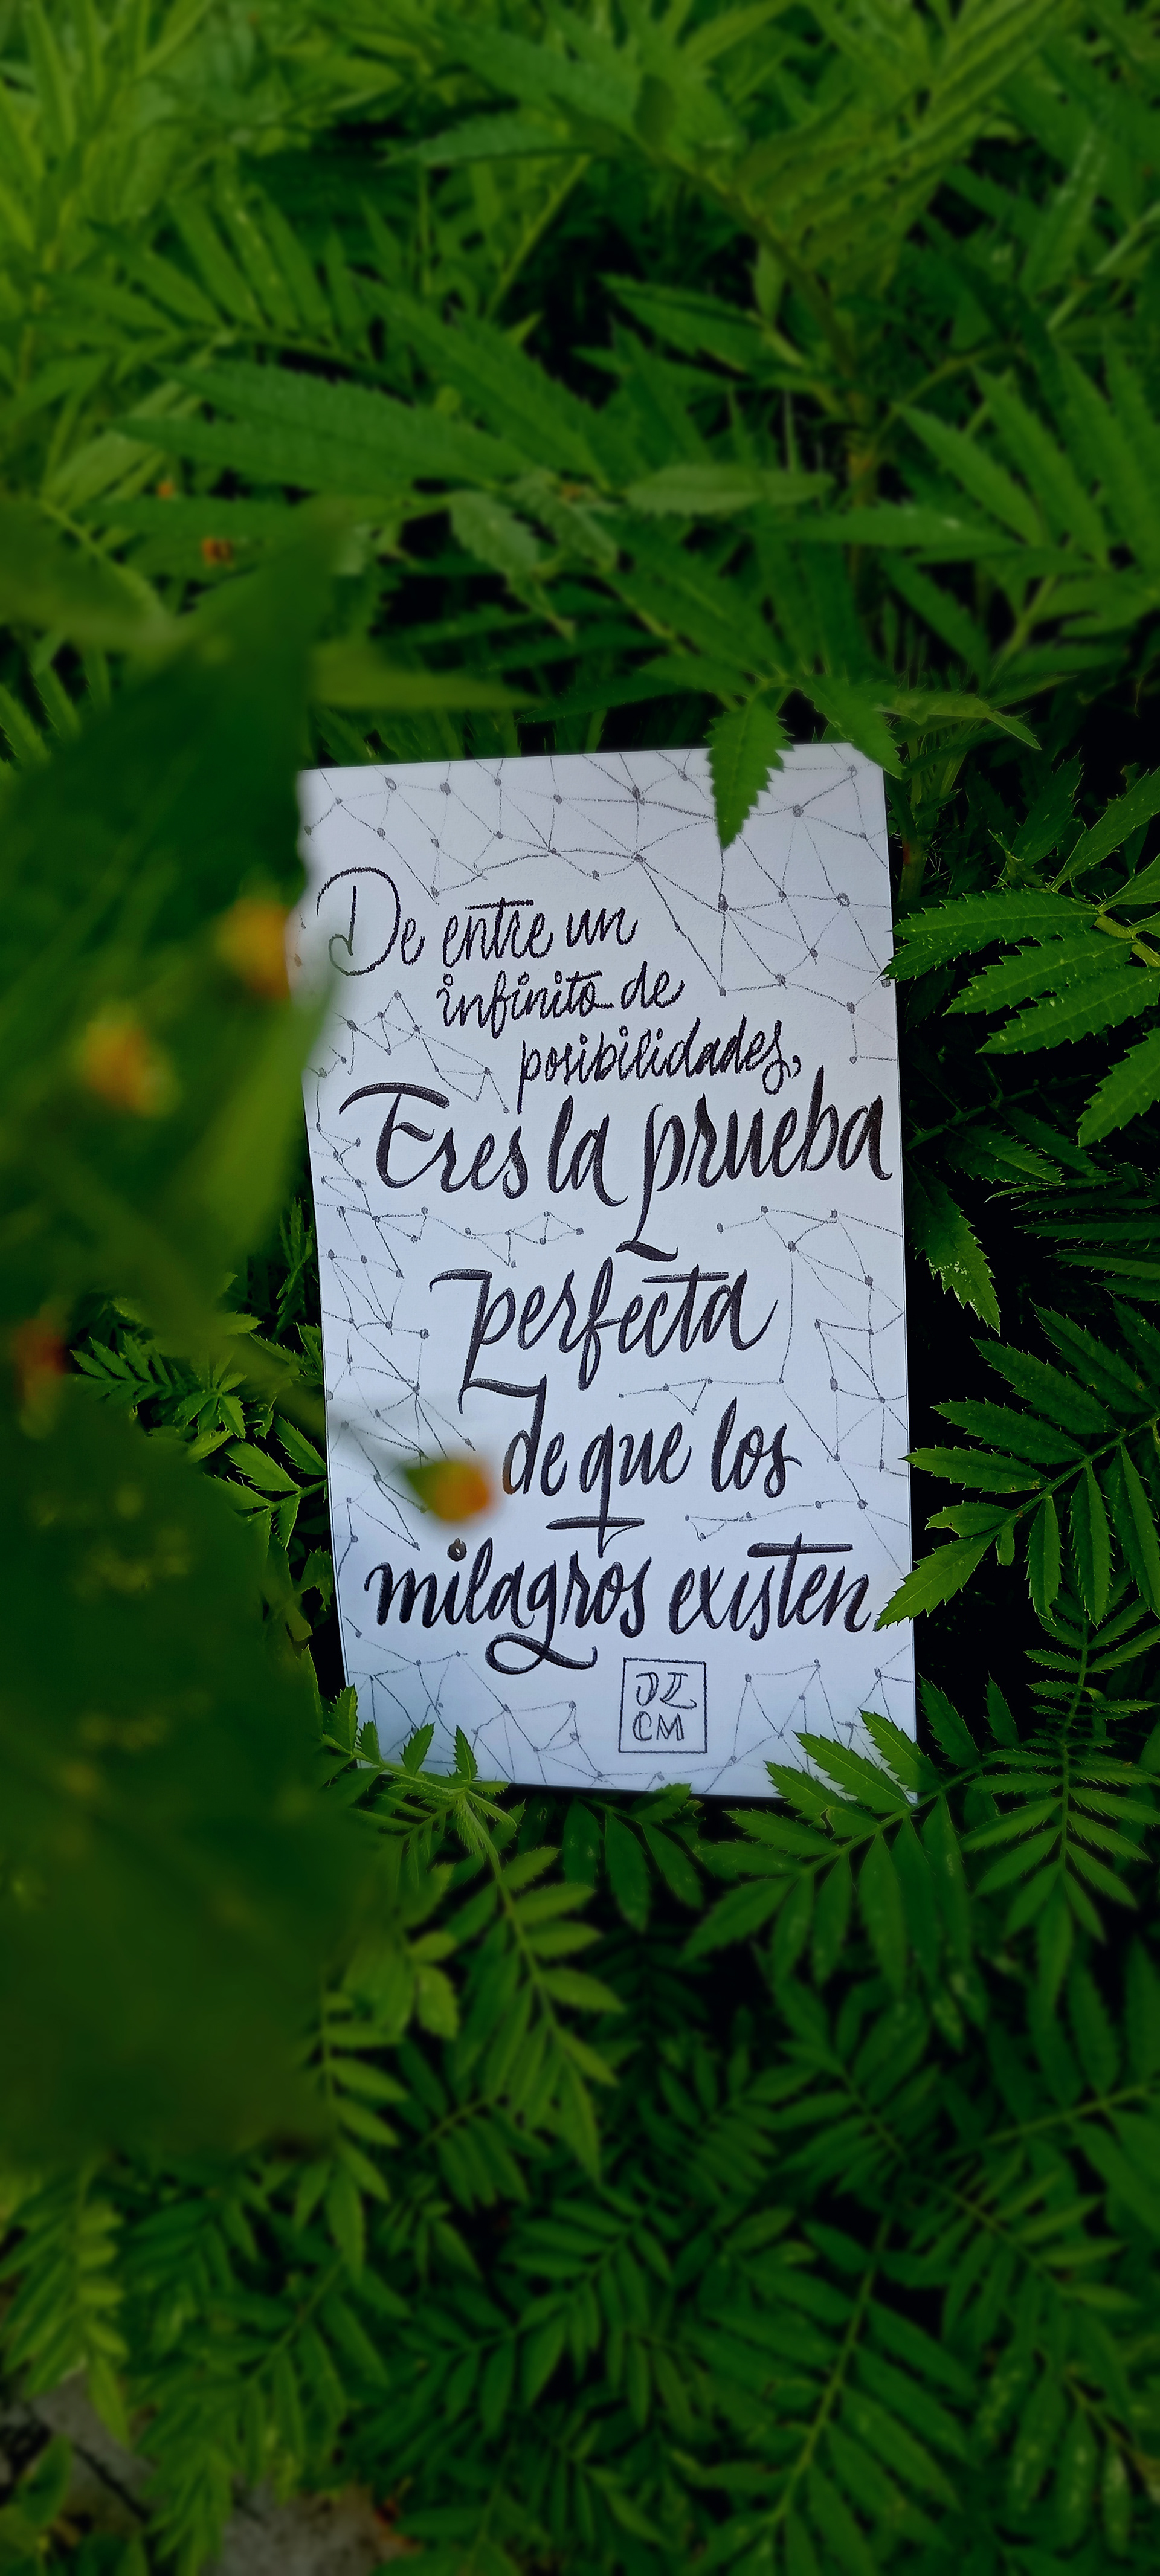 De entre un
infinito de
posibilidades,
Eres la prueba
perfecta
de que los
milagros existen
JZ
CM